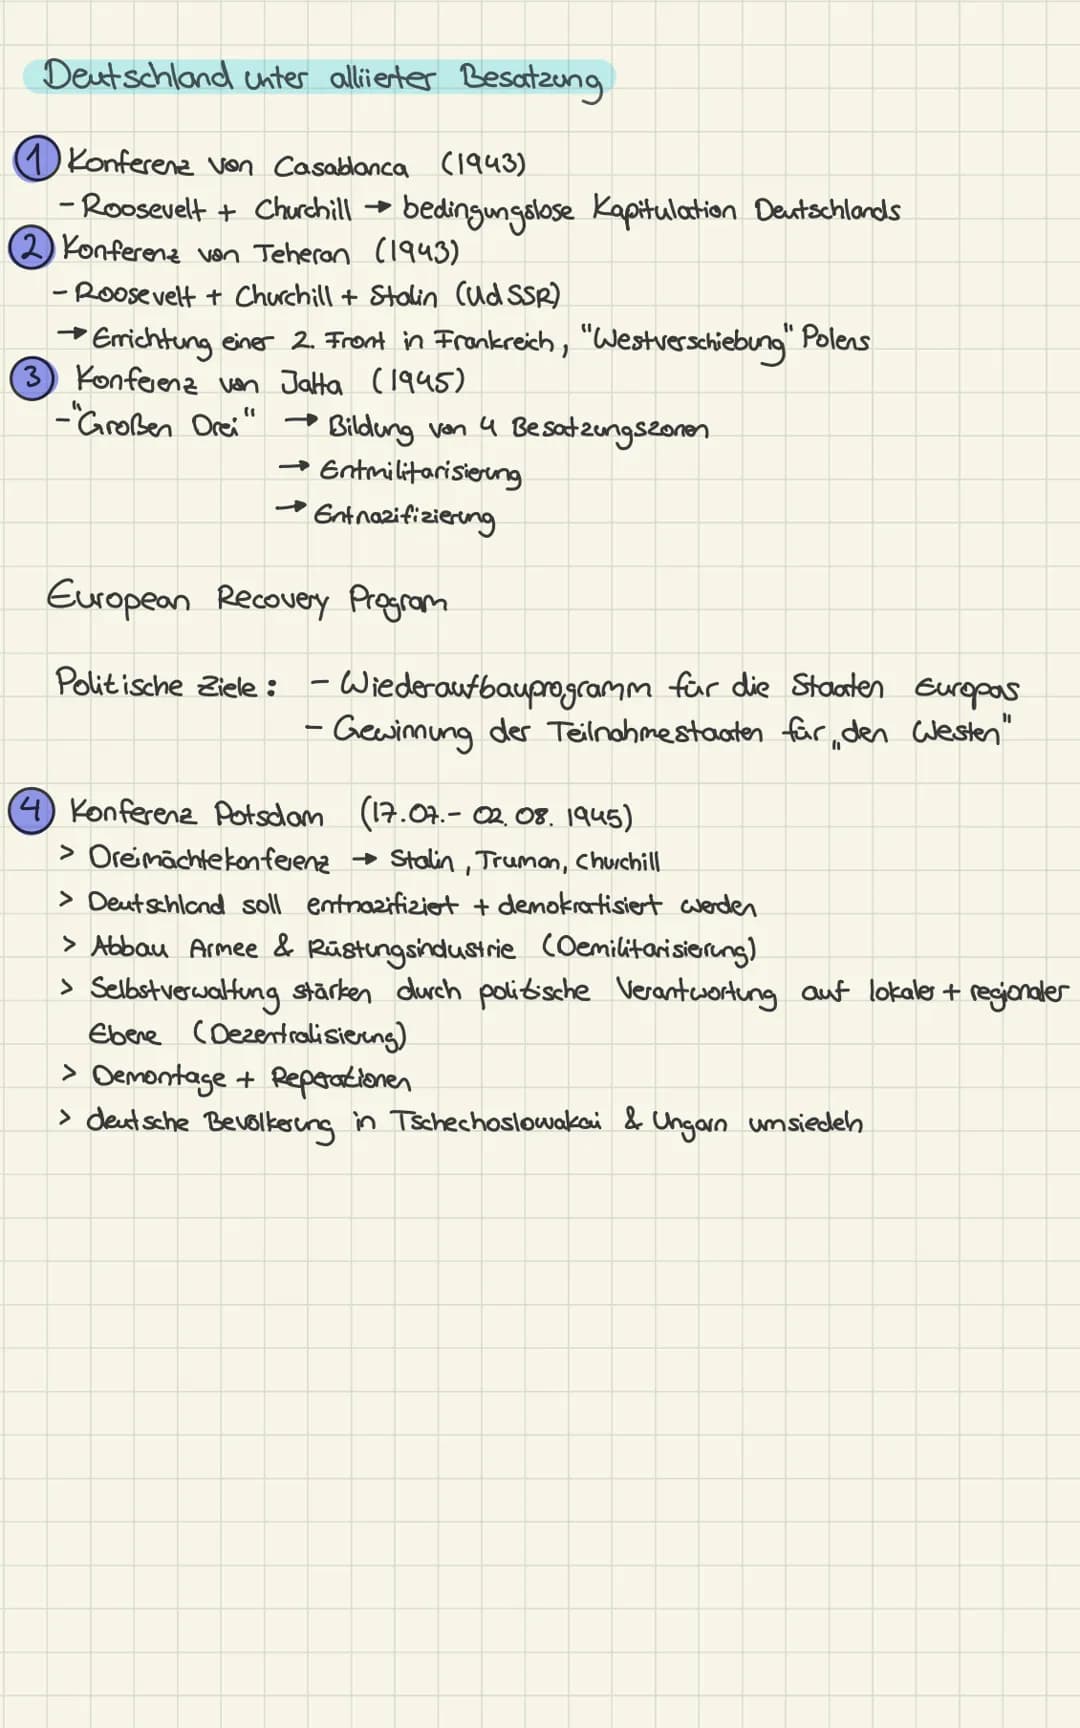 Deutschland unter alliierter Besatzung
1 Konferenz von Casablanca (1943)
- Roosevelt + Churchill → bedingungslose Kapitulation Deutschlands
2 Konferenz von Teheran (1943)
- Roosevelt + Churchill + Stalin (UdSSR)
→ Errichtung einer 2. Front in Frankreich, "Westverschiebung" Polens
3 Konferenz von Jalta (1945)
- "Großen Drei" → Bildung von 4 Besatzungszonen
→ Entmilitarisierung
→ Entnazifizierung
European Recovery Program
Politische Ziele: - Wiederaufbauprogramm für die Staaten Europas
- Gewinnung der Teilnahmestaaten für „den Westen"
4 Konferenz Potsdam (17.07.- 02.08.1945)
> Dreimächtekonferenz → Stalin, Truman, Churchill
> Deutschland soll entnazifiziert + demokratisiert werden
> Abbau Armee & Rüstungsindustrie (Demilitarisierung)
> Selbstverwaltung stärken durch politische Verantwortung auf lokaler + regionaler
Ebene (Dezentralisierung)
> Demontage + Reperationen
> deutsche Bevölkerung in Tschechoslowakai & Ungarn umsiedeln